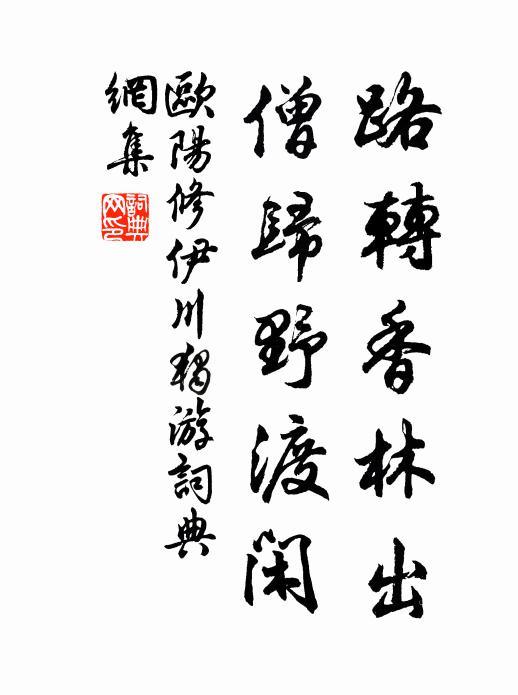 路轉香林出
僧歸野渡閑
歐陽修伊川獨游詞典
網集
詞典
网印